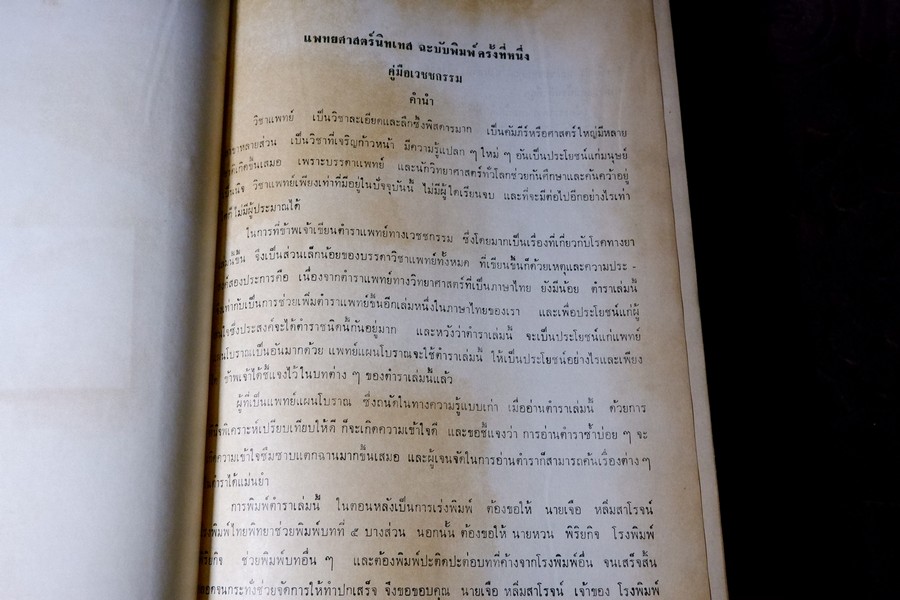 แพทยศาสตร์นิทเทส ฉะบับพิมพ์ครั้งที่หนึ่ง
คู่มือเวชชกรรม
คำนำ
วิชาแพทย์ เป็นวิชาละเอียดและลึกซึ้งพิสดารมาก เป็นคัมภีร์หรือศาสตร์ใหญ่มีหลาย
หลายส่วน เป็นวิชาที่เจริญก้าวหน้า มีความรู้แปลก ๆ ใหม่ ๆ อันเป็นประโยชน์แก่มนุษย์
เกิดขึ้นเสมอ เพราะบรรดาแพทย์ และนักวิทยาศาสตร์ทั่วโลกช่วยกันศึกษาและค้นคว้าอยู่
วิชาแพทย์เพียงเท่าที่มีอยู่ในปัจจุบันนี้ ไม่มีผู้ใดเรียนจบ และที่จะมีต่อไปอีกอย่างไรเท่า
ไม่มีผู้ประมาณได้
ในการที่ข้าพเจ้าเขียนตำราแพทย์ทางเวชชกรรม ซึ่งโดยมากเป็นเรื่องที่เกี่ยวกับโรคทางยา
ขึ้น จึงเป็นส่วนเล็กน้อยของบรรดาวิชาแพทย์ทั้งหมด ที่เขียนขึ้นก็ด้วยเหตุและความประ -
สองประการคือ เนื่องจากตำราแพทย์ทางวิทยาศาสตร์ที่เป็นภาษาไทย ยังมีน้อย ตำราเล่มนี้
เท่ากับเป็นการช่วยเพิ่มตำราแพทย์ขึ้นอีกเล่มหนึ่งในภาษาไทยของเรา และเพื่อประโยชน์แก่ผู้
ซึ่งประสงค์จะได้ตำราชนิดนี้กันอยู่มาก และหวังว่าตำราเล่มนี้ จะเป็นประโยชน์แก่แพทย์
แผนโบราณเป็นอันมากด้วย แพทย์แผนโบราณจะใช้ตำราเล่มนี้ ให้เป็นประโยชน์อย่างไรและเพียง
ข้าพเจ้าได้ชี้แจงไว้ในบทต่าง ๆ ของตำราเล่มนี้แล้ว
ผู้ที่เป็นแพทย์แผนโบราณ ซึ่งถนัดในทางความรู้แบบเก่า เมื่ออ่านตำราเล่มนี้ ด้วยการ
พิเคราะห์เปรียบเทียบให้ดี ก็จะเกิดความเข้าใจดี และขอชี้แจงว่า การอ่านตำราซ้ำบ่อย ๆ จะ
ความเข้าใจซึมซาบแตกฉานมากขึ้นเสมอ และผู้เจนจัดในการอ่านตำราก็สามารถค้นเรื่องต่าง ๆ
ตำราได้แม่นยำ
การพิมพ์ตำราเล่มนี้ ในตอนหลังเป็นการเร่งพิมพ์ ต้องขอให้ นายเจือ หลิ่มสาโรจน์
โรงพิมพ์ไทยพิทยาช่วยพิมพ์บทที่ ๕ บางส่วน นอกนั้น ต้องขอให้ นายหวน พิริยกิจ โรงพิมพ์
ช่วยพิมพ์บทอื่น ๆ และต้องพิมพ์ปะติดปะต่อบทที่ค้างจากโรงพิมพ์อื่น จนเสร็จสิ้น
ตลอดจนกระทั่งช่วยจัดการให้ทำปกเสร็จ จึงขอขอบคุณ นายเจือ หลิ่มสาโรจน์ เจ้าของ โรงพิมพ์